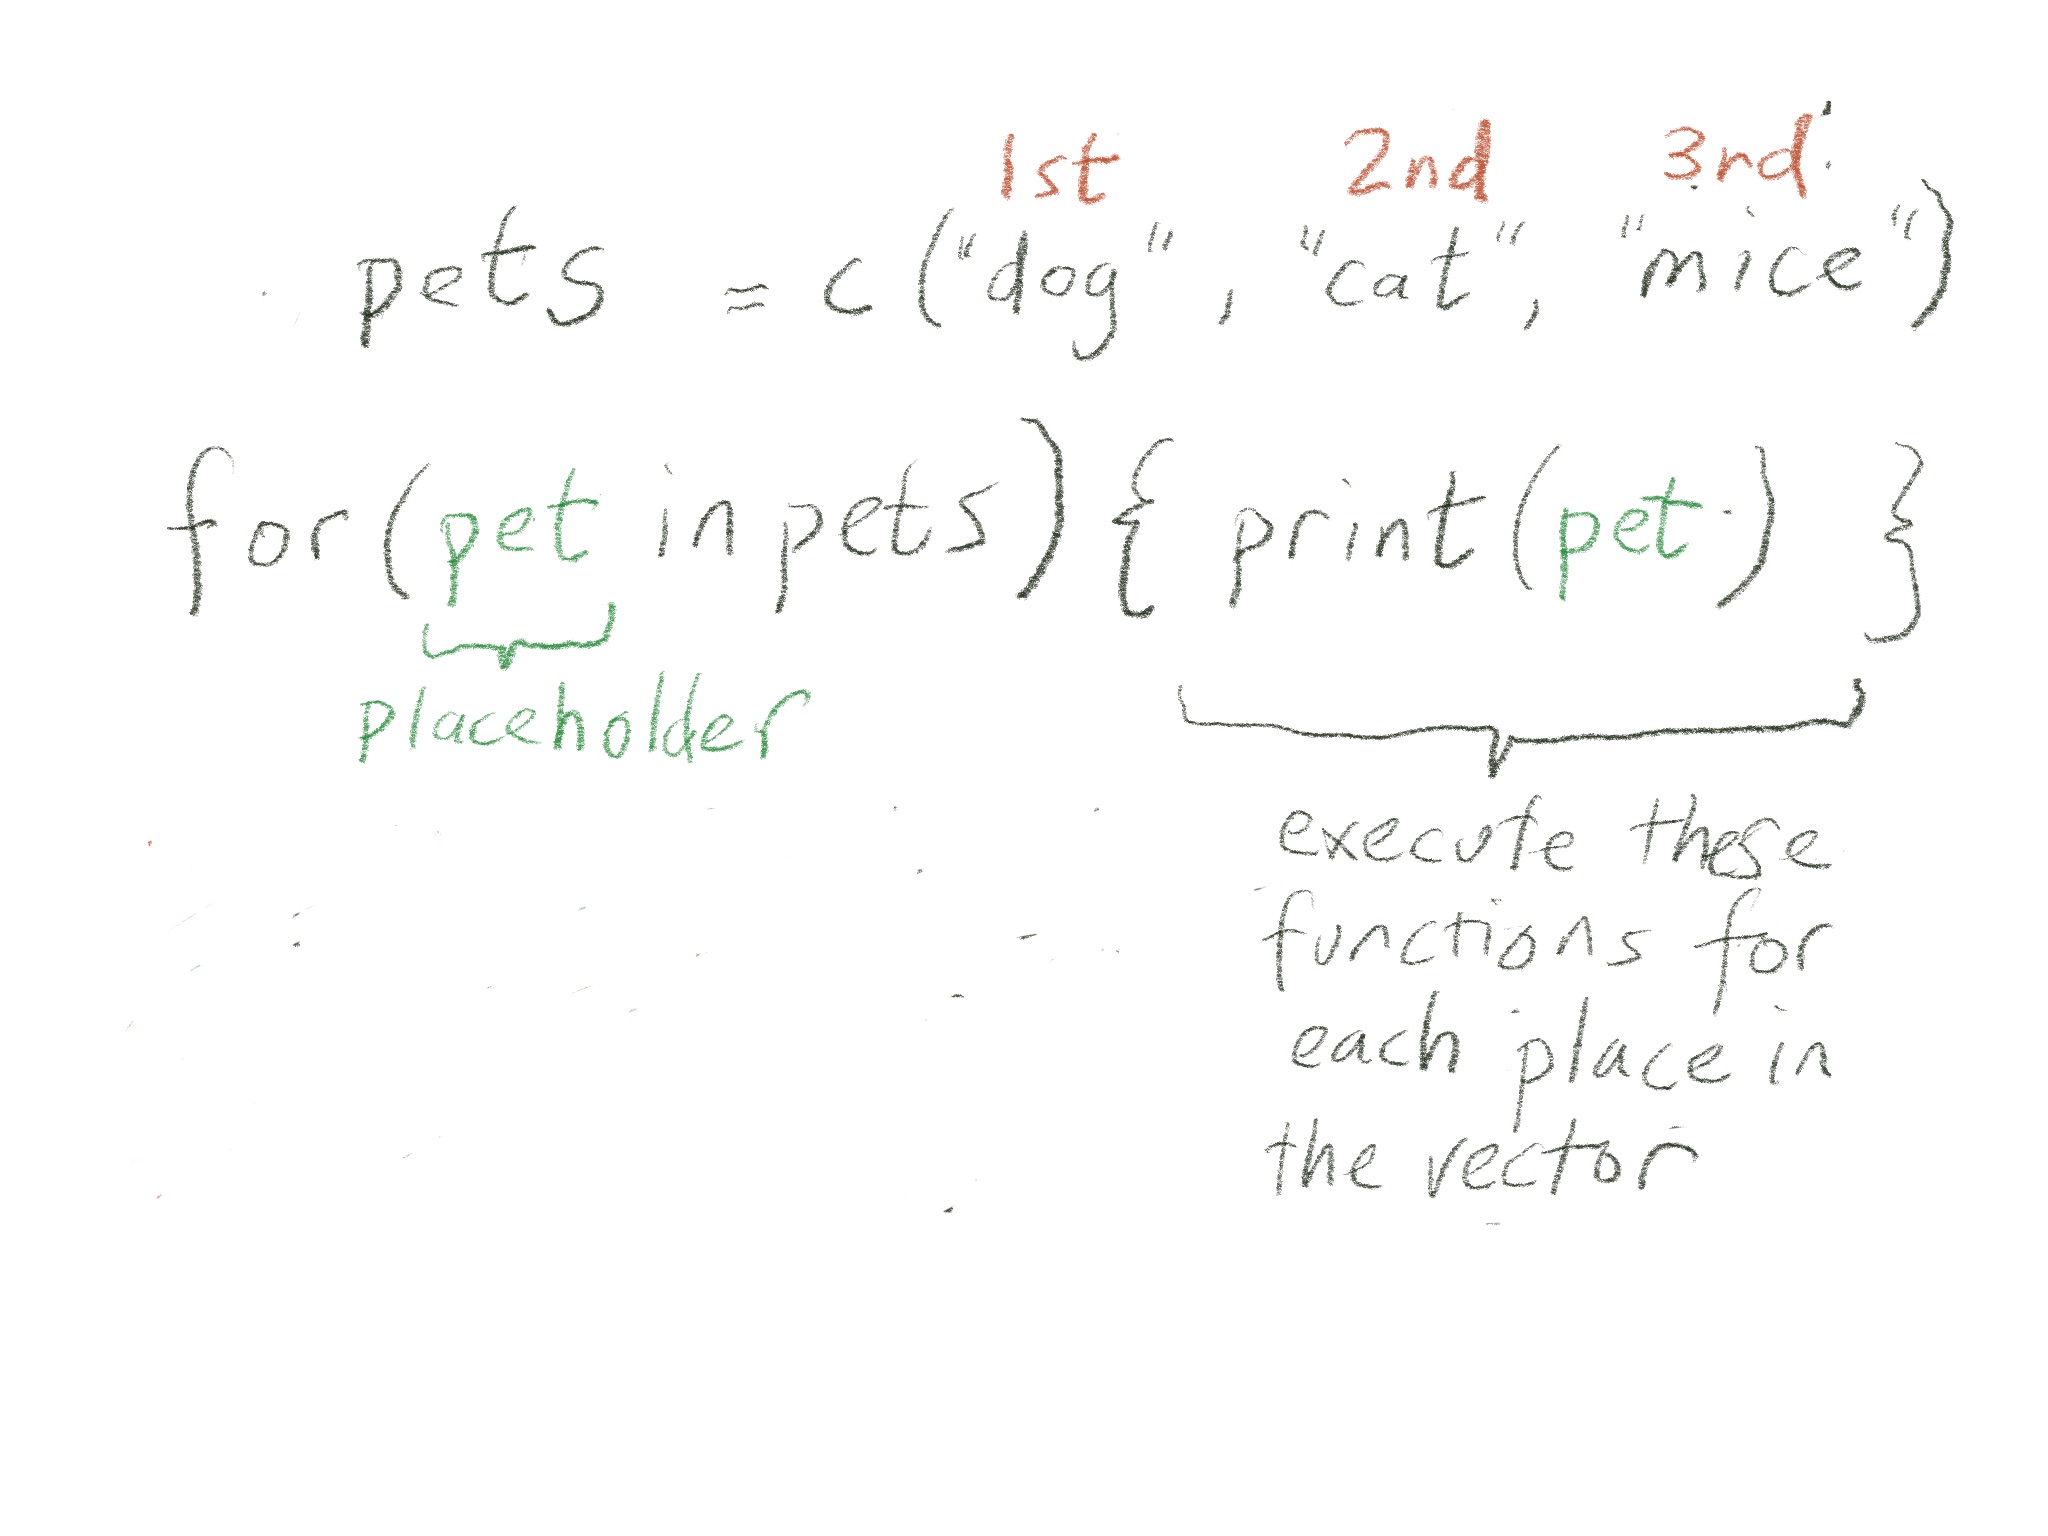 1st 2nd 3rd
pets = c("dog", "cat", "mice")
for(pet in pets){ print(pet) }
placeholder
execute these
functions for
each place in
the vector